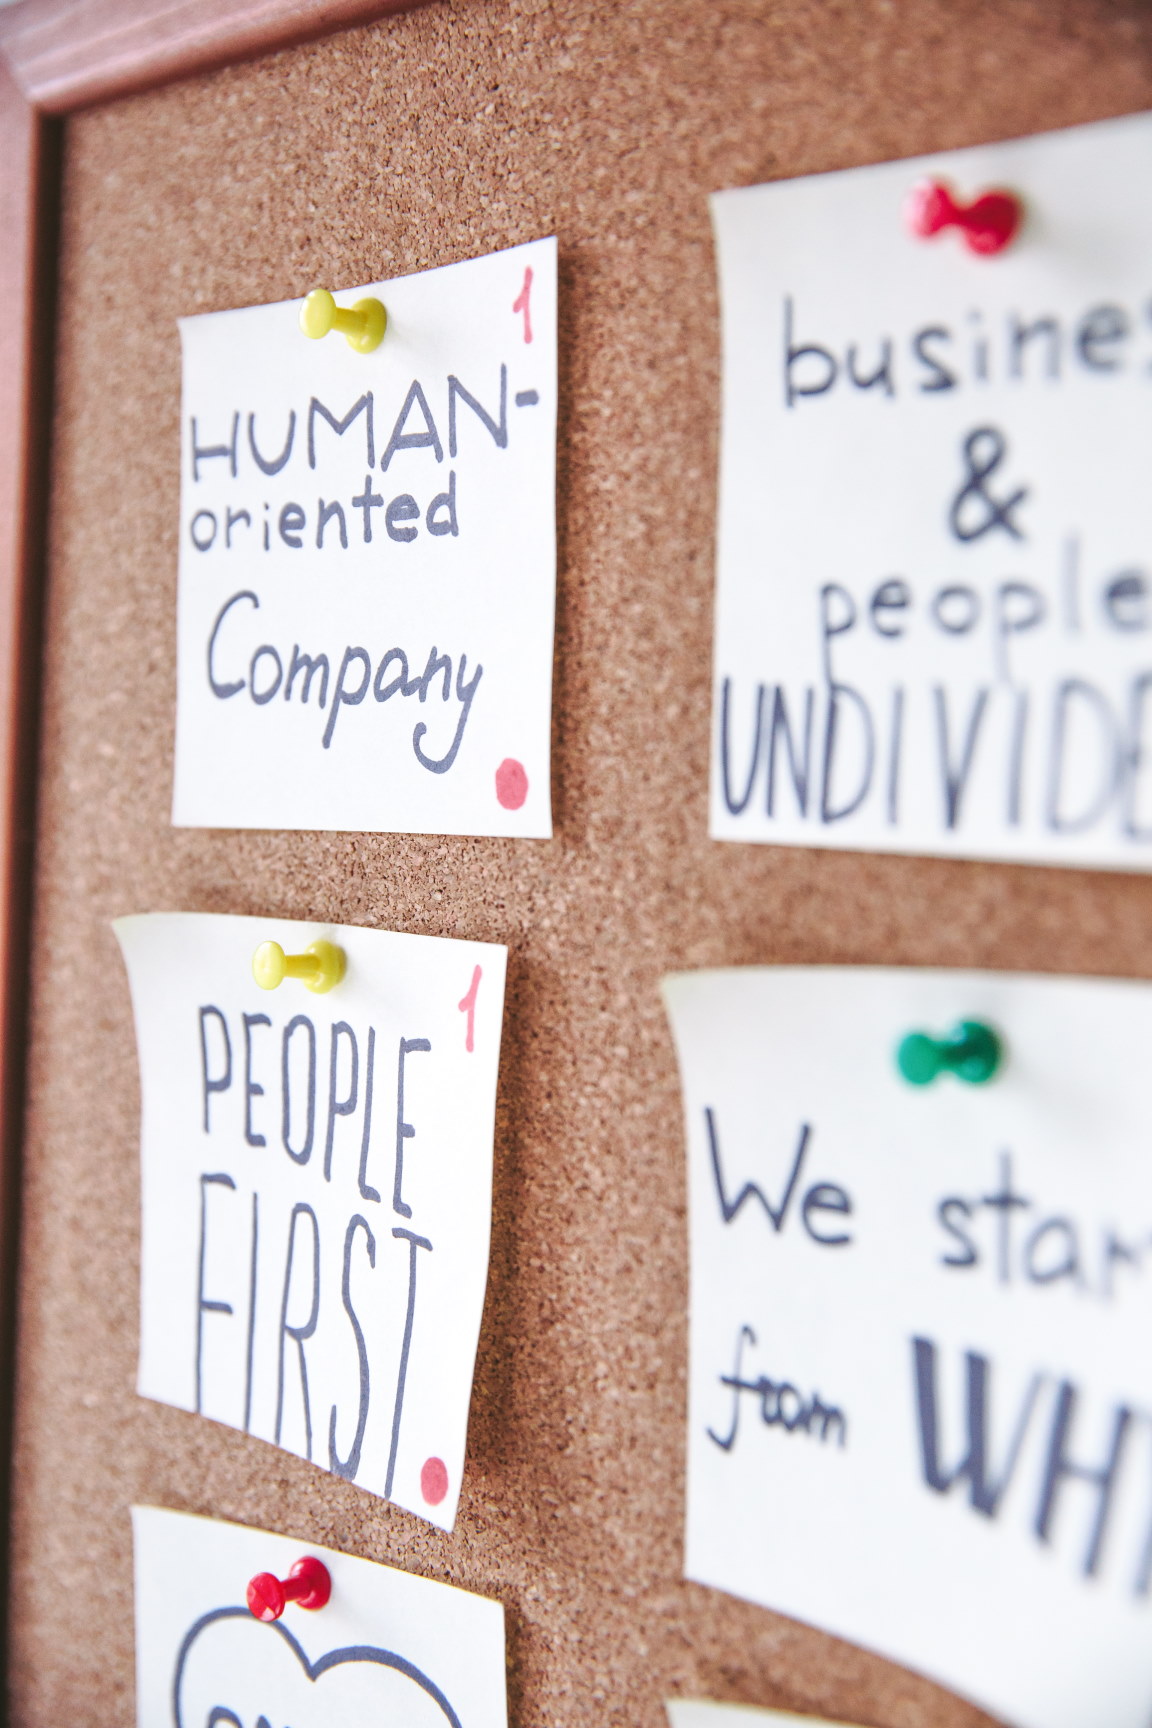 1
HUMAN-
oriented
Company
busines
&
people
UNDIVIDE
1
PEOPLE
FIRST
We star
from WH